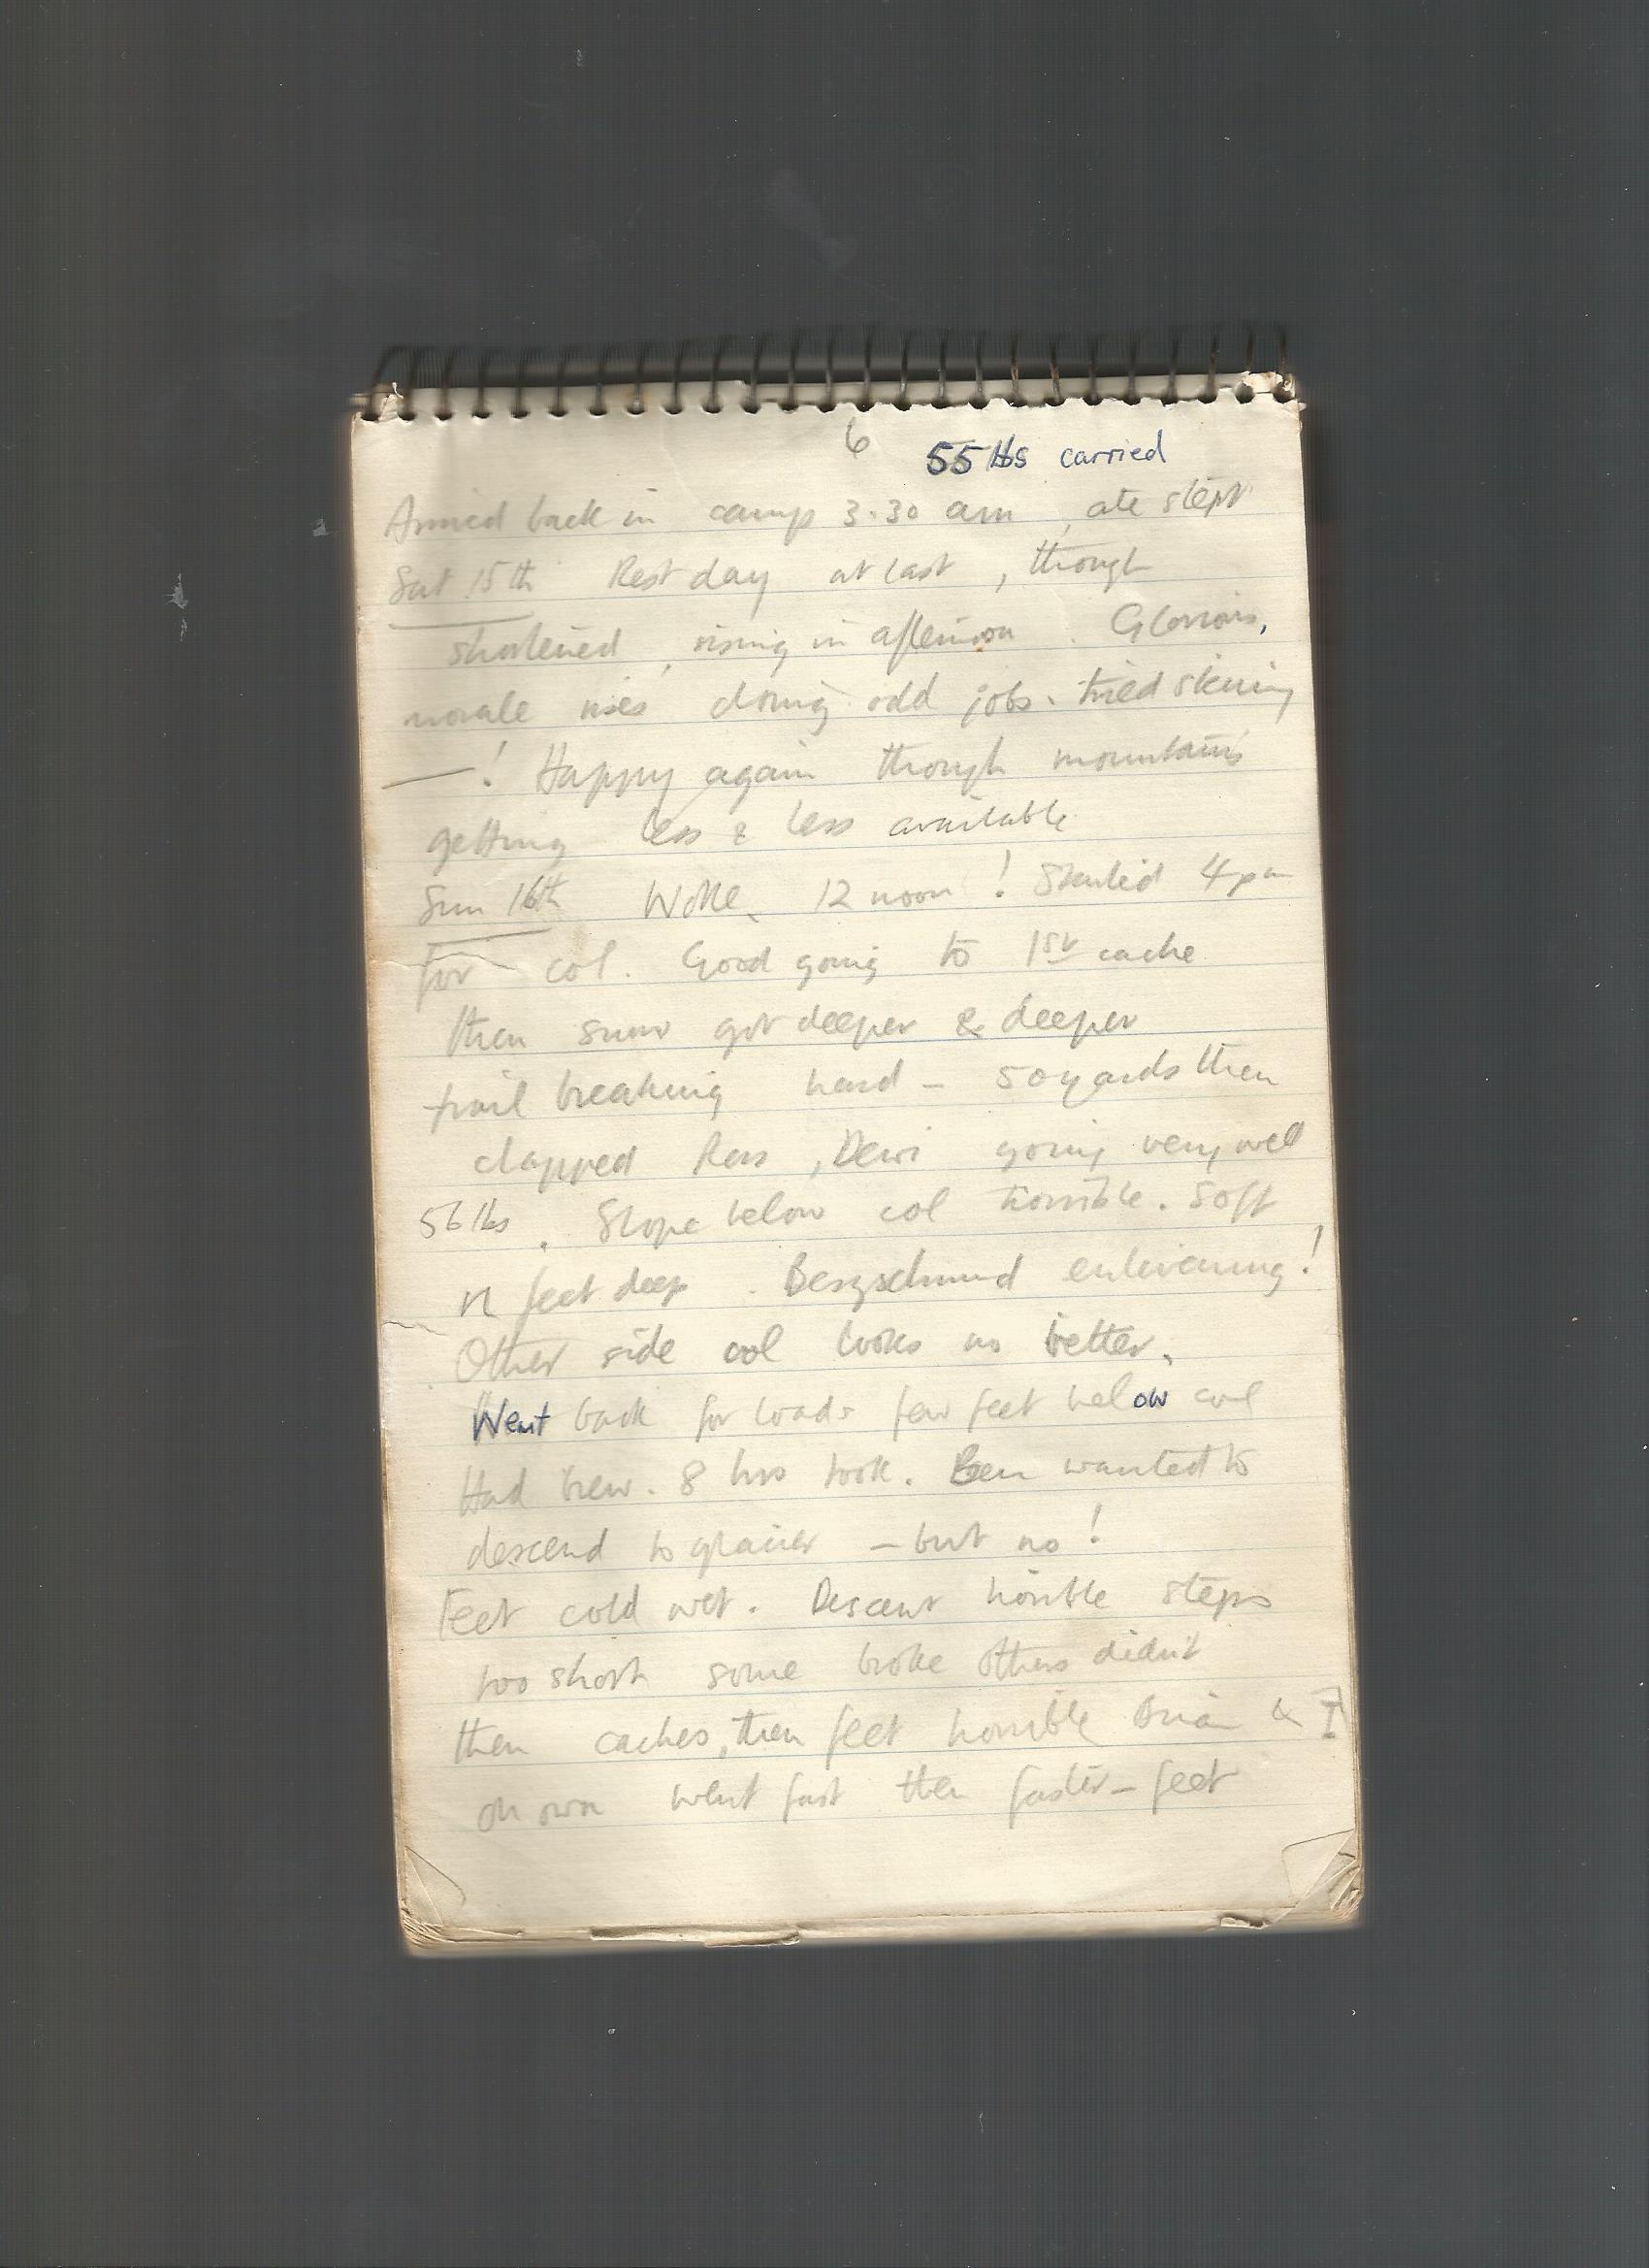 6 55 lbs carried
Arrived back in camp 3.30 am, ate slept
Sat 15th Rest day at last, though
shortened, rising in afternoon. Glorious,
morale rises doing odd jobs. tried skiing
— ! Happy again though mountains
getting less & less available
Sun 16th Woke 12 noon! Started 4 pm
for col. Good going to 1st cache
then snow got deeper & deeper
trail breaking hard – 50 yards then
clapped Ross, Dewi going very well
56 lbs. Slope below col horrible. Soft
n feet deep. Bergschrund enlivening!
Other side col looks no better.
Went back for loads few feet below col
Had brew. 8 hrs took. Ben wanted to
descend to glacier – but no!
Feet cold wet. Descent horrible steps
too short some broke others didn't
then caches, then feet horrible Brian & I
on own went fast then faster – feet